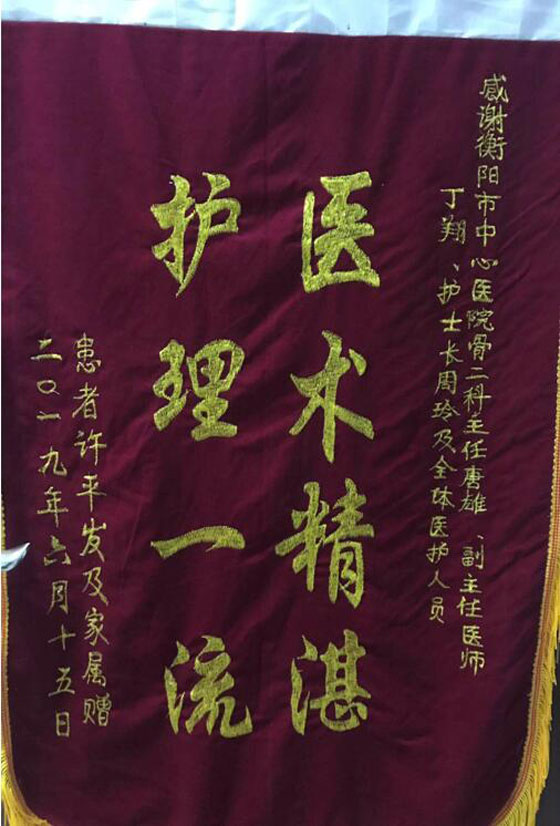 感谢衡阳市中心医院骨二科主任唐雄、副主任医师
丁翔、护士长周玲及全体医护人员
医术精湛
护理一流
患者许平发及家属赠
二〇一九年六月十五日